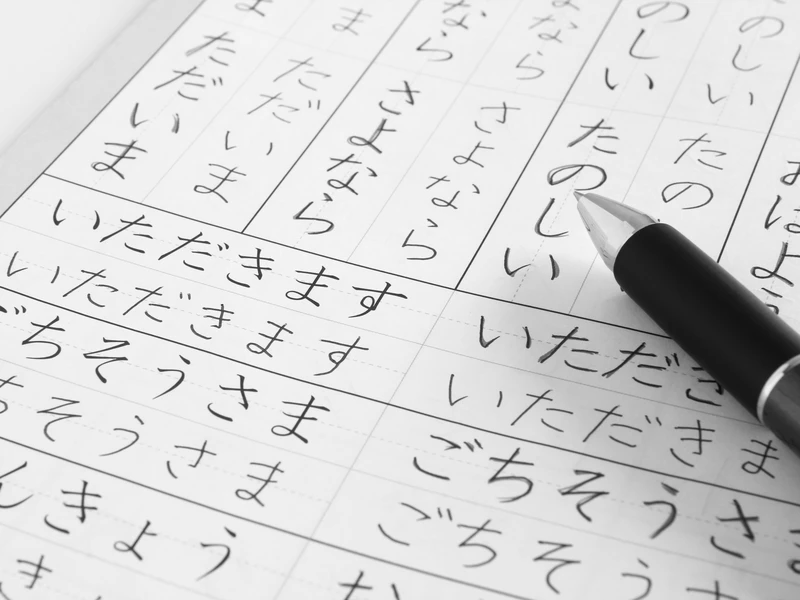 おはよ
のしい
たの
のしい
たのしい
なら
さよなら
なら
さよなら
ま
ただいま
ま
ただいま
いただきます
いただきます
ごちそうさま
ちそうさま
んきょう
き
いただき
いただきま
ごちそうさ
ごちそうさ